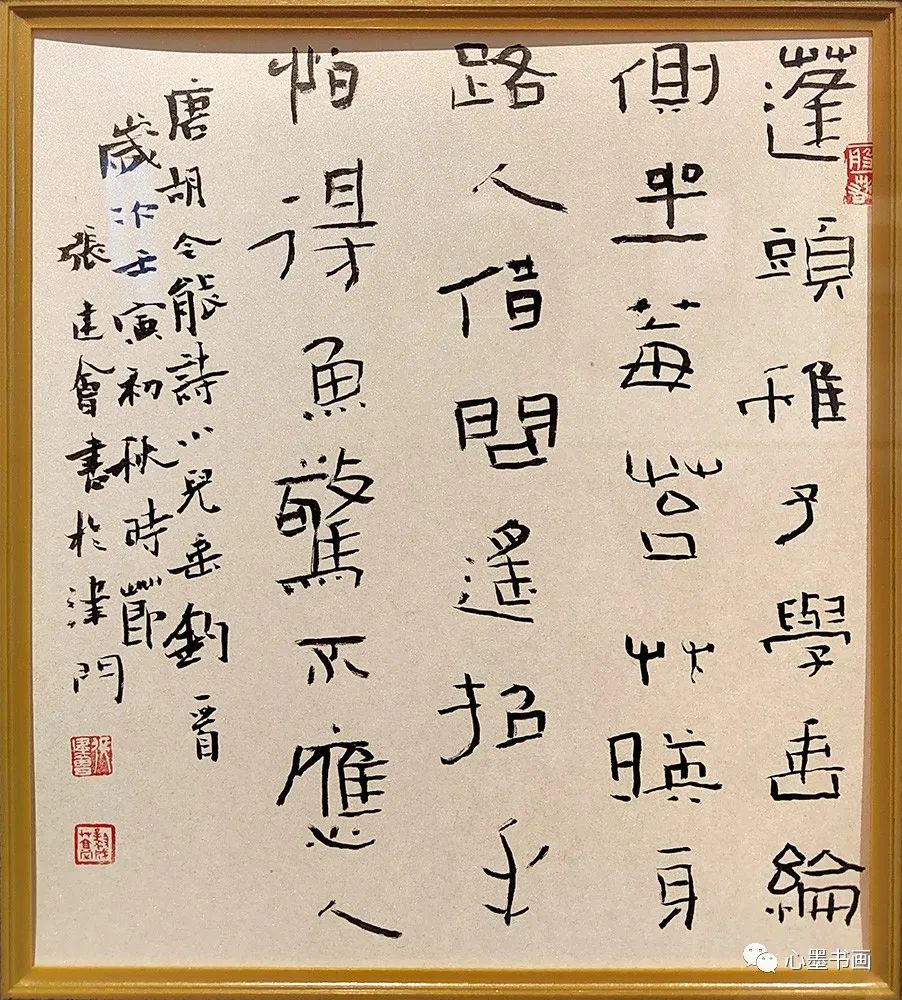 蓬頭稚子學垂綸
側坐莓苔艸暎身
路人借問遙招手
怕得魚驚不應人
唐胡令能詩小兒垂釣一首
歲次壬寅初秋時節
張建會書於津門
心墨书画